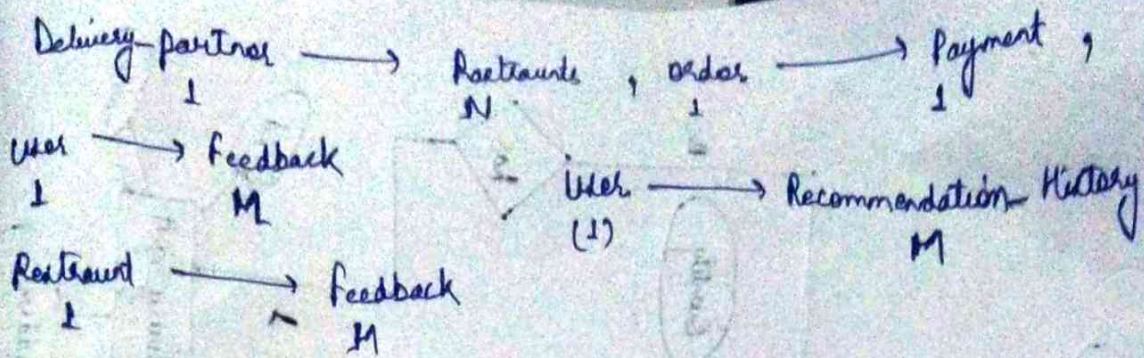 Delivery-partner → Restraunts , order → Payment ,
1 N 1 1
User → Feedback
1 M
User → Recommendation-History
(1) M
Restraunt → Feedback
1 M